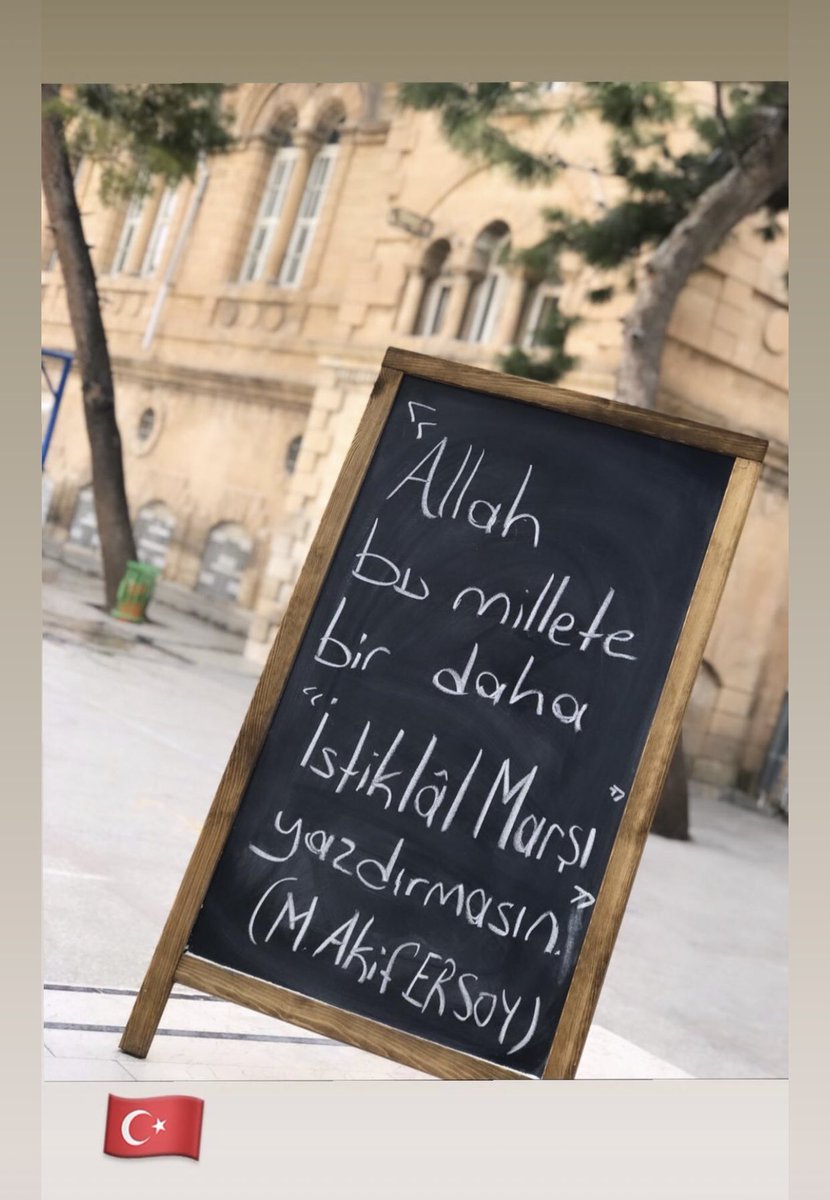 "Allah
bu millete
bir daha
"İstiklâl Marşı"
yazdırmasın."
(M. Akif ERSOY)